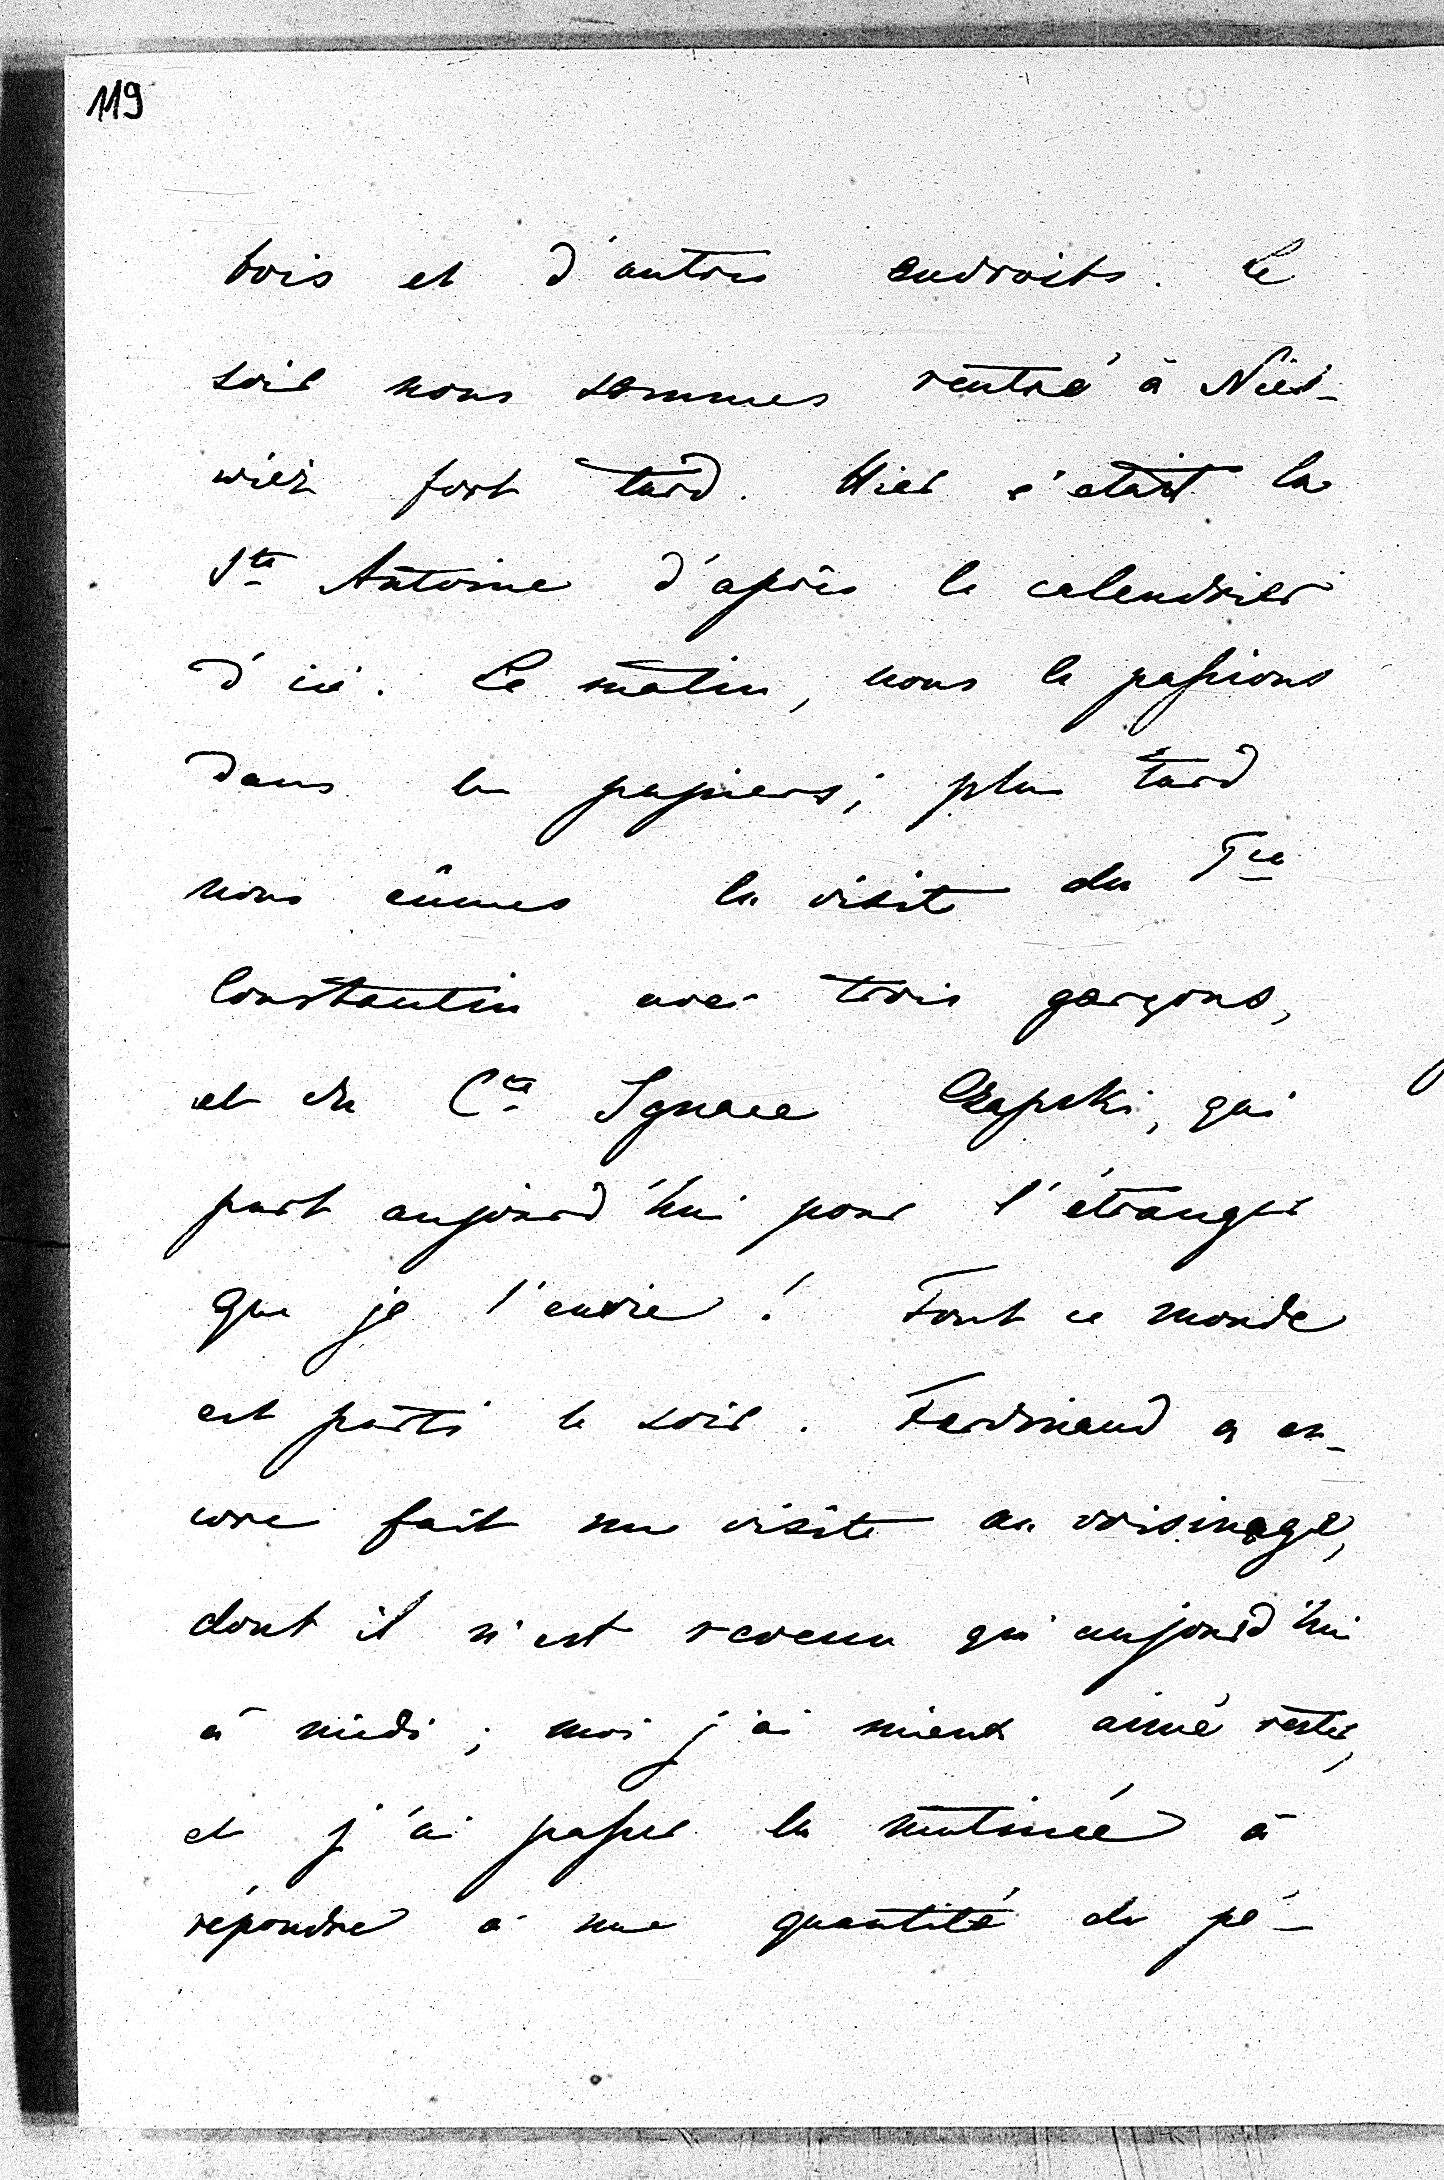 119
bois et d'autres endroits. Le
soir nous sommes rentré à Nies-
wiez fort tard. Hier c'était la
Ste Antoine d'après le calendrier
d'ici. Le matin, nous le passions
dans les papiers; plus tard
nous eûmes la visite du Pce
Constantin avec trois garçons,
et du Cte Ignace Czapski, qui
part aujourd'hui pour l'étranger
que je l'envie! Tout ce monde
est parti le soir. Ferdinand a en-
core fait une visite au voisinage,
dont il n'est revenu qu'aujourd'hui
à midi; moi j'ai mieux aimé rester,
et j'ai passer la matinée à
répondre à une quantité de pé-